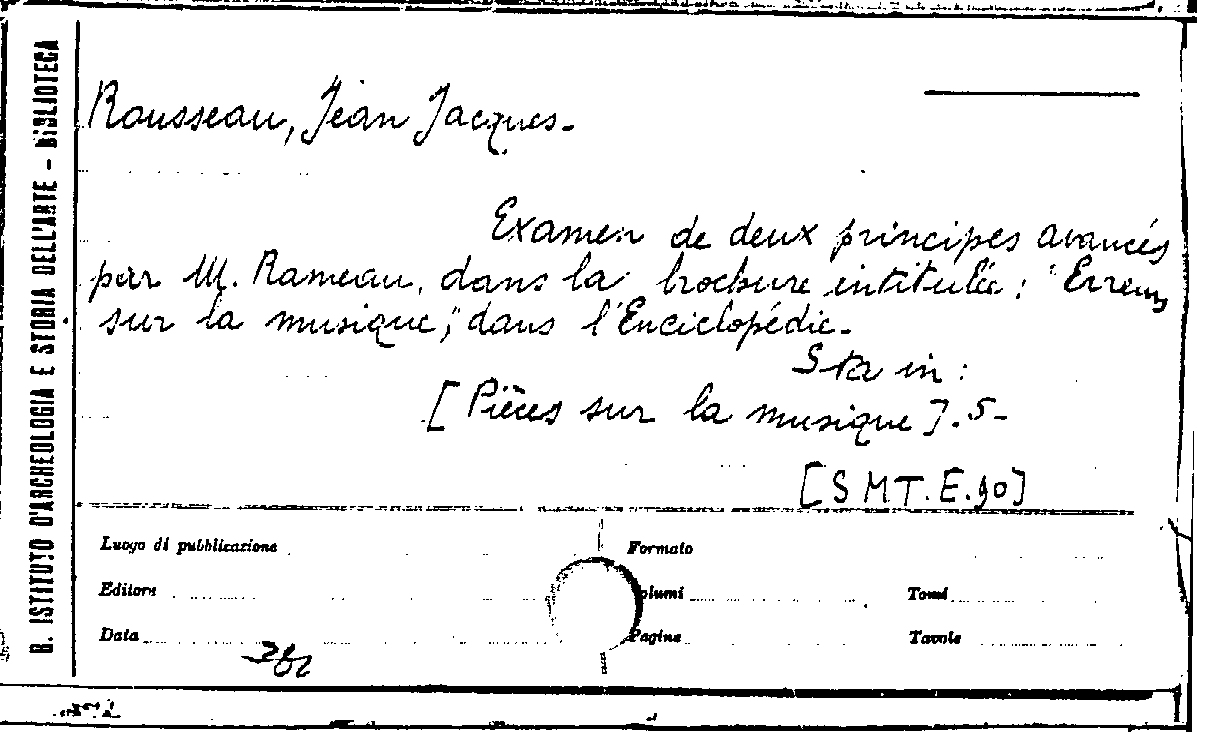 B. ISTITUTO D'ARCHEOLOGIA E STORIA DELL'ARTE - BIBLIOTECA
Rousseau, Jean Jacques.
Examen de deux principes avancés
par M. Rameau, dans la brochure intitulée: "Erreurs
sur la musique", dans l'Enciclopédie.
Sta in:
[Pièces sur la musique]. 5-
[S MT. E. 90]
Luogo di pubblicazione
Formato
Editore
Volumi
Tomi
Data
Pagine
Tavole